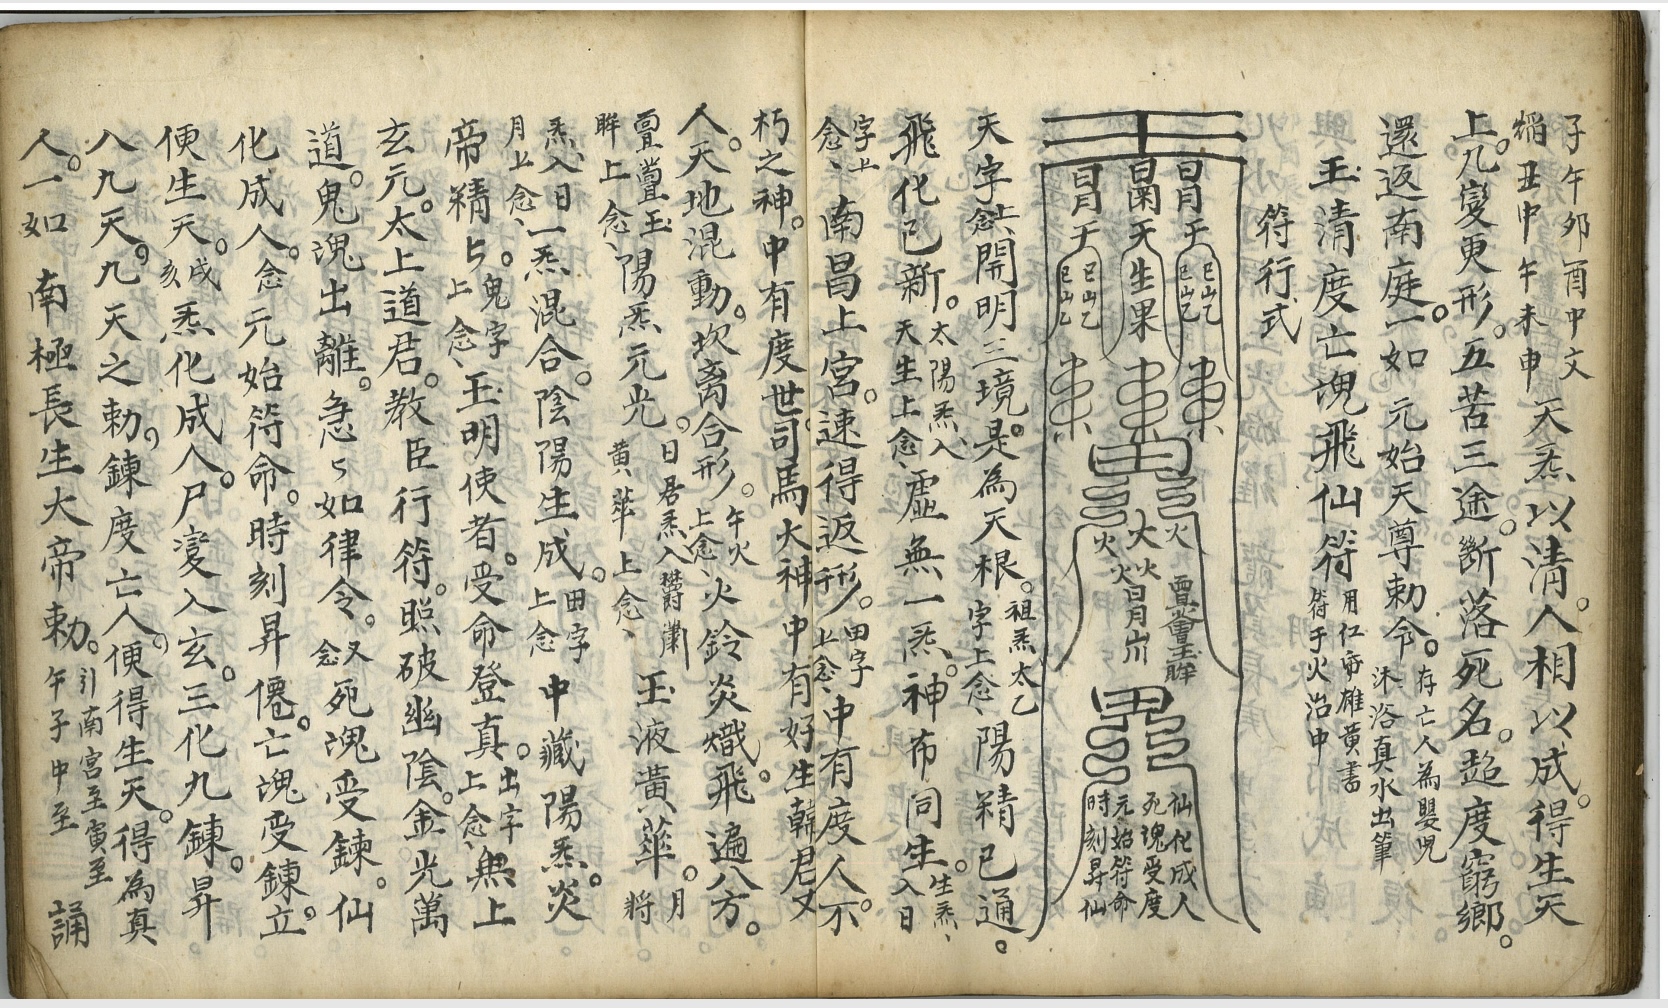 子午夘酉中文
丑中午未申 天炁以清。人相以成。得生天
上。九變更形。五苦三途。斷落死名。超度窮鄉。
還返南庭。一如 元始天尊勅令。存亡人為嬰児
沐浴真水出筆
玉清度亡魂飛仙符 用仁 雄黃書
符于火治中
符行式
冐 冐
于 天 于
生果
巳山乙 巳山乙
巳山乙 巳山乙
火 大 火
火 火
仙化成人
死魂受度
元始符命
時刻昇仙
天字上念、開明三境。是為天根。祖炁太乙
字上念、陽精已通。
飛化已新。太陽炁入
天生上念、虛無一炁。神布同生。生炁、
入日
字上
念、南昌上宮。速得返形。田字
上念、中有度人不
朽之神。中有度世司馬大神中有好生韓君又
人。天地混動。坎离合形。午火
上念火鈴炎熾。飛遍八方。
玉
眸上念、陽炁元光。日君炁入
黃華上念、玉液黃華。月
將
炁入日
月上念、一炁混合。陰陽生成。田字
上念中藏陽炁。炎
帝精与。鬼字
上念、玉明使者。受命登真。出字
上念、無上
玄元。太上道君。教臣行符。照破幽陰。金光萬
道。鬼魂出離。急〻如律令。又
念死魂受鍊。仙
化成人。念元始符命。時刻昇僊。亡魂受鍊。立
便生天。戌
亥炁化成人。尸變入玄。三化九鍊。昇
八九天。九天之勅。鍊度亡人。便得生天。得為真
人。一如 南極長生大帝勅。引南宮至寅至
午子中至 誦